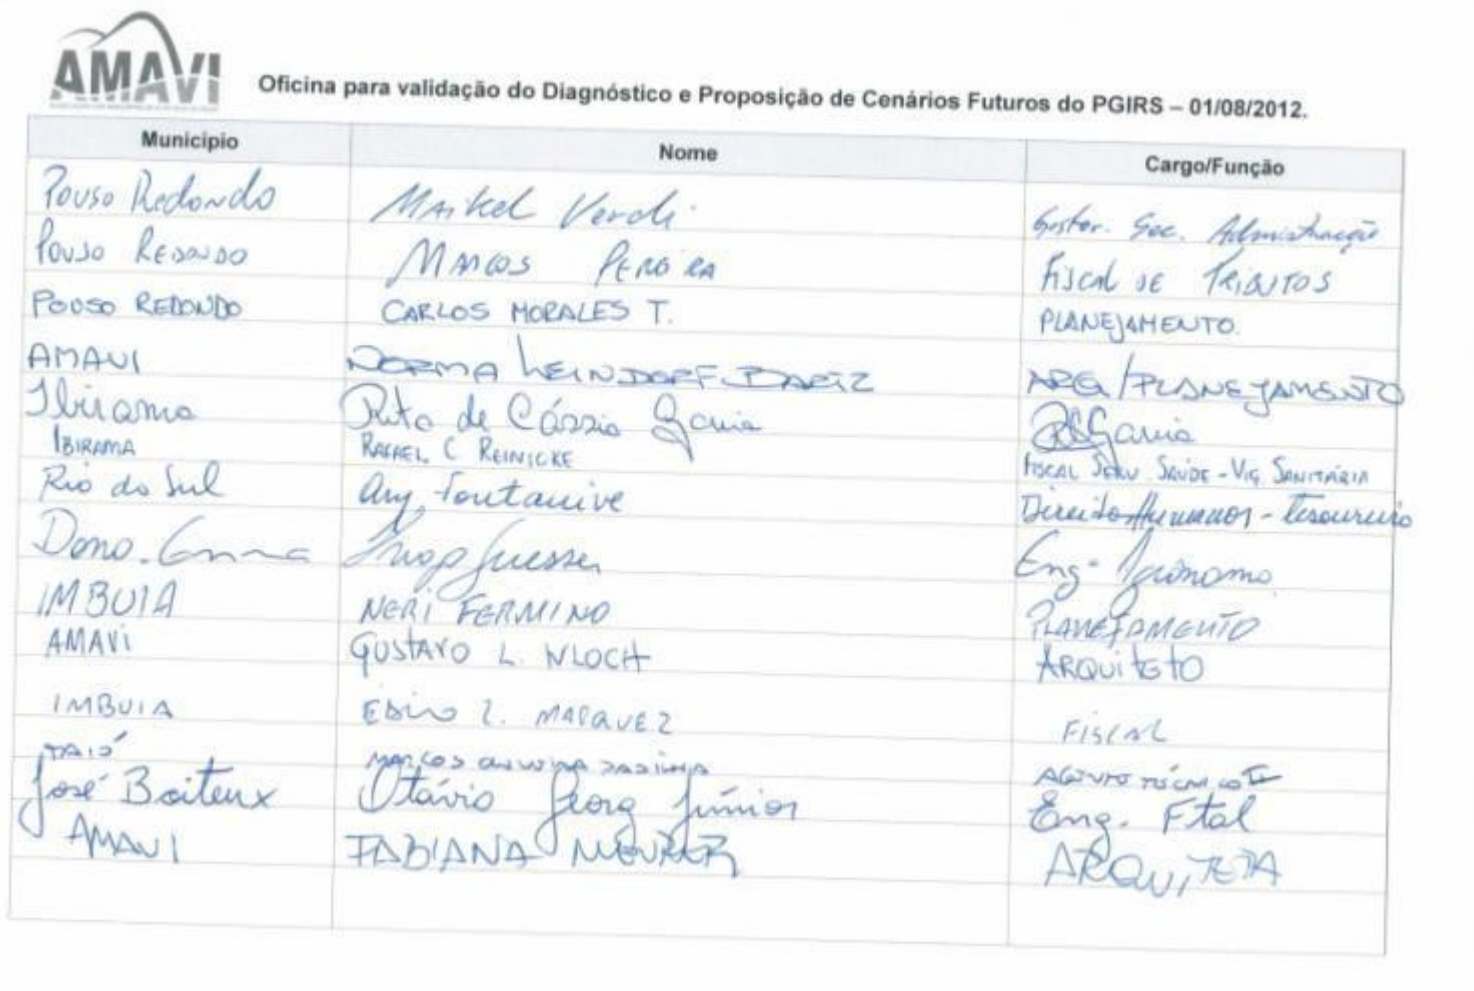 AMAVI
Oficina para validação do Diagnóstico e Proposição de Cenários Futuros do PGIRS – 01/08/2012.
Municipio Nome Cargo/Função
Pouso Redondo Maikel Verdi Gestor. Sec. Administração
Pouso Redondo Marcos Pereira Fiscal de Tributos
POUSO REDONDO CARLOS MORALES T. PLANEJAMENTO.
AMAVI NORMA LEINDORF BARTZ ARQ/PLANEJAMENTO
Ibirama Rita de Cássia Gania RCGania
IBIRAMA RAFAEL C REINICKE FISCAL SERV. SAÚDE - VIG. SANITÁRIA
Rio do Sul Ary Fontanive Direito Humanos - Tesoureiro
Dona. Emma Guesser Eng. Agrônomo
IMBUIA NERI FERMINO PLANEJAMENTO
AMAVI GUSTAVO L. WLOCH ARQUITETO
IMBUIA MARQUEZ FISCAL
TAIÓ MARCOS AGENTE
José Boiteux Otávio Georg Júnior Eng. Ftal
AMAVI FABIANA MEURER ARQUITETA